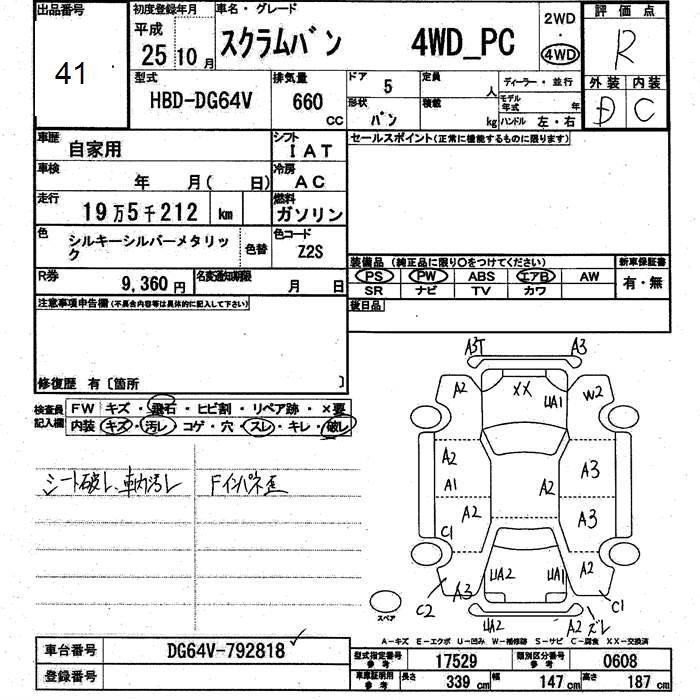 出品番号
41
初度登録年月
平成 25 10 月
車名・グレード
スクラムバン 4WD_PC
2WD
・
4WD
評価点
R
外装 内装
D C
型式
HBD-DG64V
排気量
660 CC
ドア 5
形状 バン
定員 人
積載 kg
ディーラー・並行
モデル年式 年
ハンドル 左・右
車歴
自家用
シフト
IAT
車検
年 月( 日)
冷房
AC
走行
19万5千212 km
燃料
ガソリン
色
シルキーシルバーメタリック
色替
色コード
Z2S
R券
9,360円
名変通知期限
月 日
セールスポイント(正常に機能するものに限ります)
装備品 (純正品に限り○をつけてください)
PS PW ABS エアB AW
SR ナビ TV カワ
新車保証書
有・無
後日品
注意事項申告欄(不具合内容等は具体的に記入して下さい)
修復歴 有〔箇所 〕
検査員記入欄
FW キズ・飛石・ヒビ割・リペア跡・×要
内装 キズ・汚レ・コゲ・穴・スレ・キレ・破レ
シート破レ、車内汚レ
Fインパネ歪
A3T A3
A2 XX UA1 W2
A2
A1
A2 A3
C1 A2 A3
A3 UA2 UA1 A2
C2 C1
UA2 A2 ズレ
スペア
A-キズ E-エクボ U-凹み W-補修跡 S-サビ C-腐食 XX-交換済
車台番号
DG64V-792818
登録番号
型式指定番号 参考 17529
類別区分番号 参考 0608
車庫証明用 参考 長さ 339 cm 幅 147 cm 高さ 187 cm